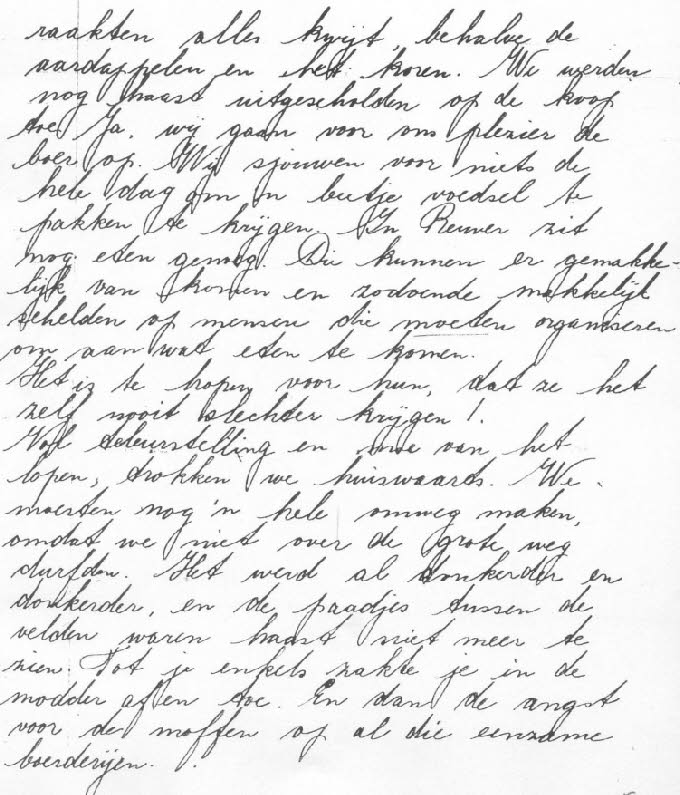 raakten alles kwijt, behalve de
aardappelen en het koren. We werden
nog haast uitgescholden op de koop
toe. Ja, wij gaan voor ons plezier de
boer op. Wij sjouwen voor niets de
hele dag om 'n beetje voedsel te
pakken te krijgen. In Reuver zit
nog eten genoeg. Die kunnen er gemakke-
lijk van komen en zodoende makkelijk
schelden op mensen die moeten organiseren
om aan wat eten te komen.
Het is te hopen voor hun, dat ze het
zelf nooit slechter krijgen!.
Vol teleurstelling en moe van het
lopen, trokken we huiswaarts. We
moesten nog 'n hele omweg maken,
omdat we niet over de grote weg
durfden. Het werd al donkerder en
donkerder, en de paadjes tussen de
velden waren haast niet meer te
zien. Tot je enkels zakte je in de
modder af en toe. En dan de angst
voor de moffen op al die eenzame
boerderijen.